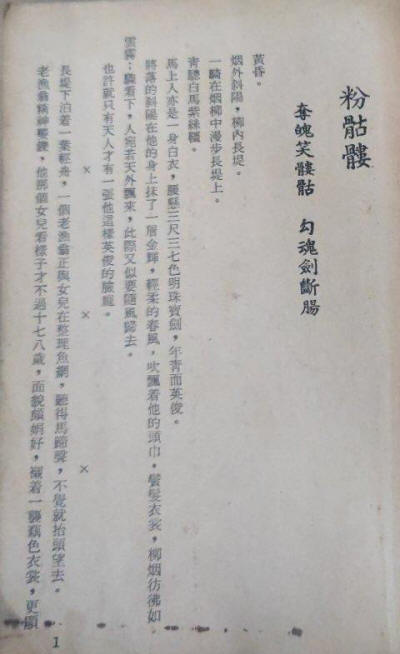 粉骷髏
奪魄笑髏骷　勾魂劍斷腸
黃昏。
烟外斜陽，柳內長堤。
一騎在烟柳中漫步長堤上。
青驄白馬紫絲韁。
馬上人亦是一身白衣，腰懸三尺三七色明珠寶劍，年青而英俊。
將落的斜陽在他的身上抹了一層金輝，輕柔的春風，吹飄着他的頭巾，鬢髮衣裳，柳烟彷彿如
雲霧；驟看下，人宛若天外飄來，此際又似要隨風歸去。
也許就只有天人才有一張他這樣英俊的臉龐。
×　×　×
長堤下泊着一葉輕舟，一個老漁翁正與女兒在整理魚網，聽得馬蹄聲，不覺就抬頭望去。
老漁翁精神矍鑠，他那個女兒看樣子才不過十七八歲，面貌頗娟好，襯着一襲藕色衣裳，更顯
1